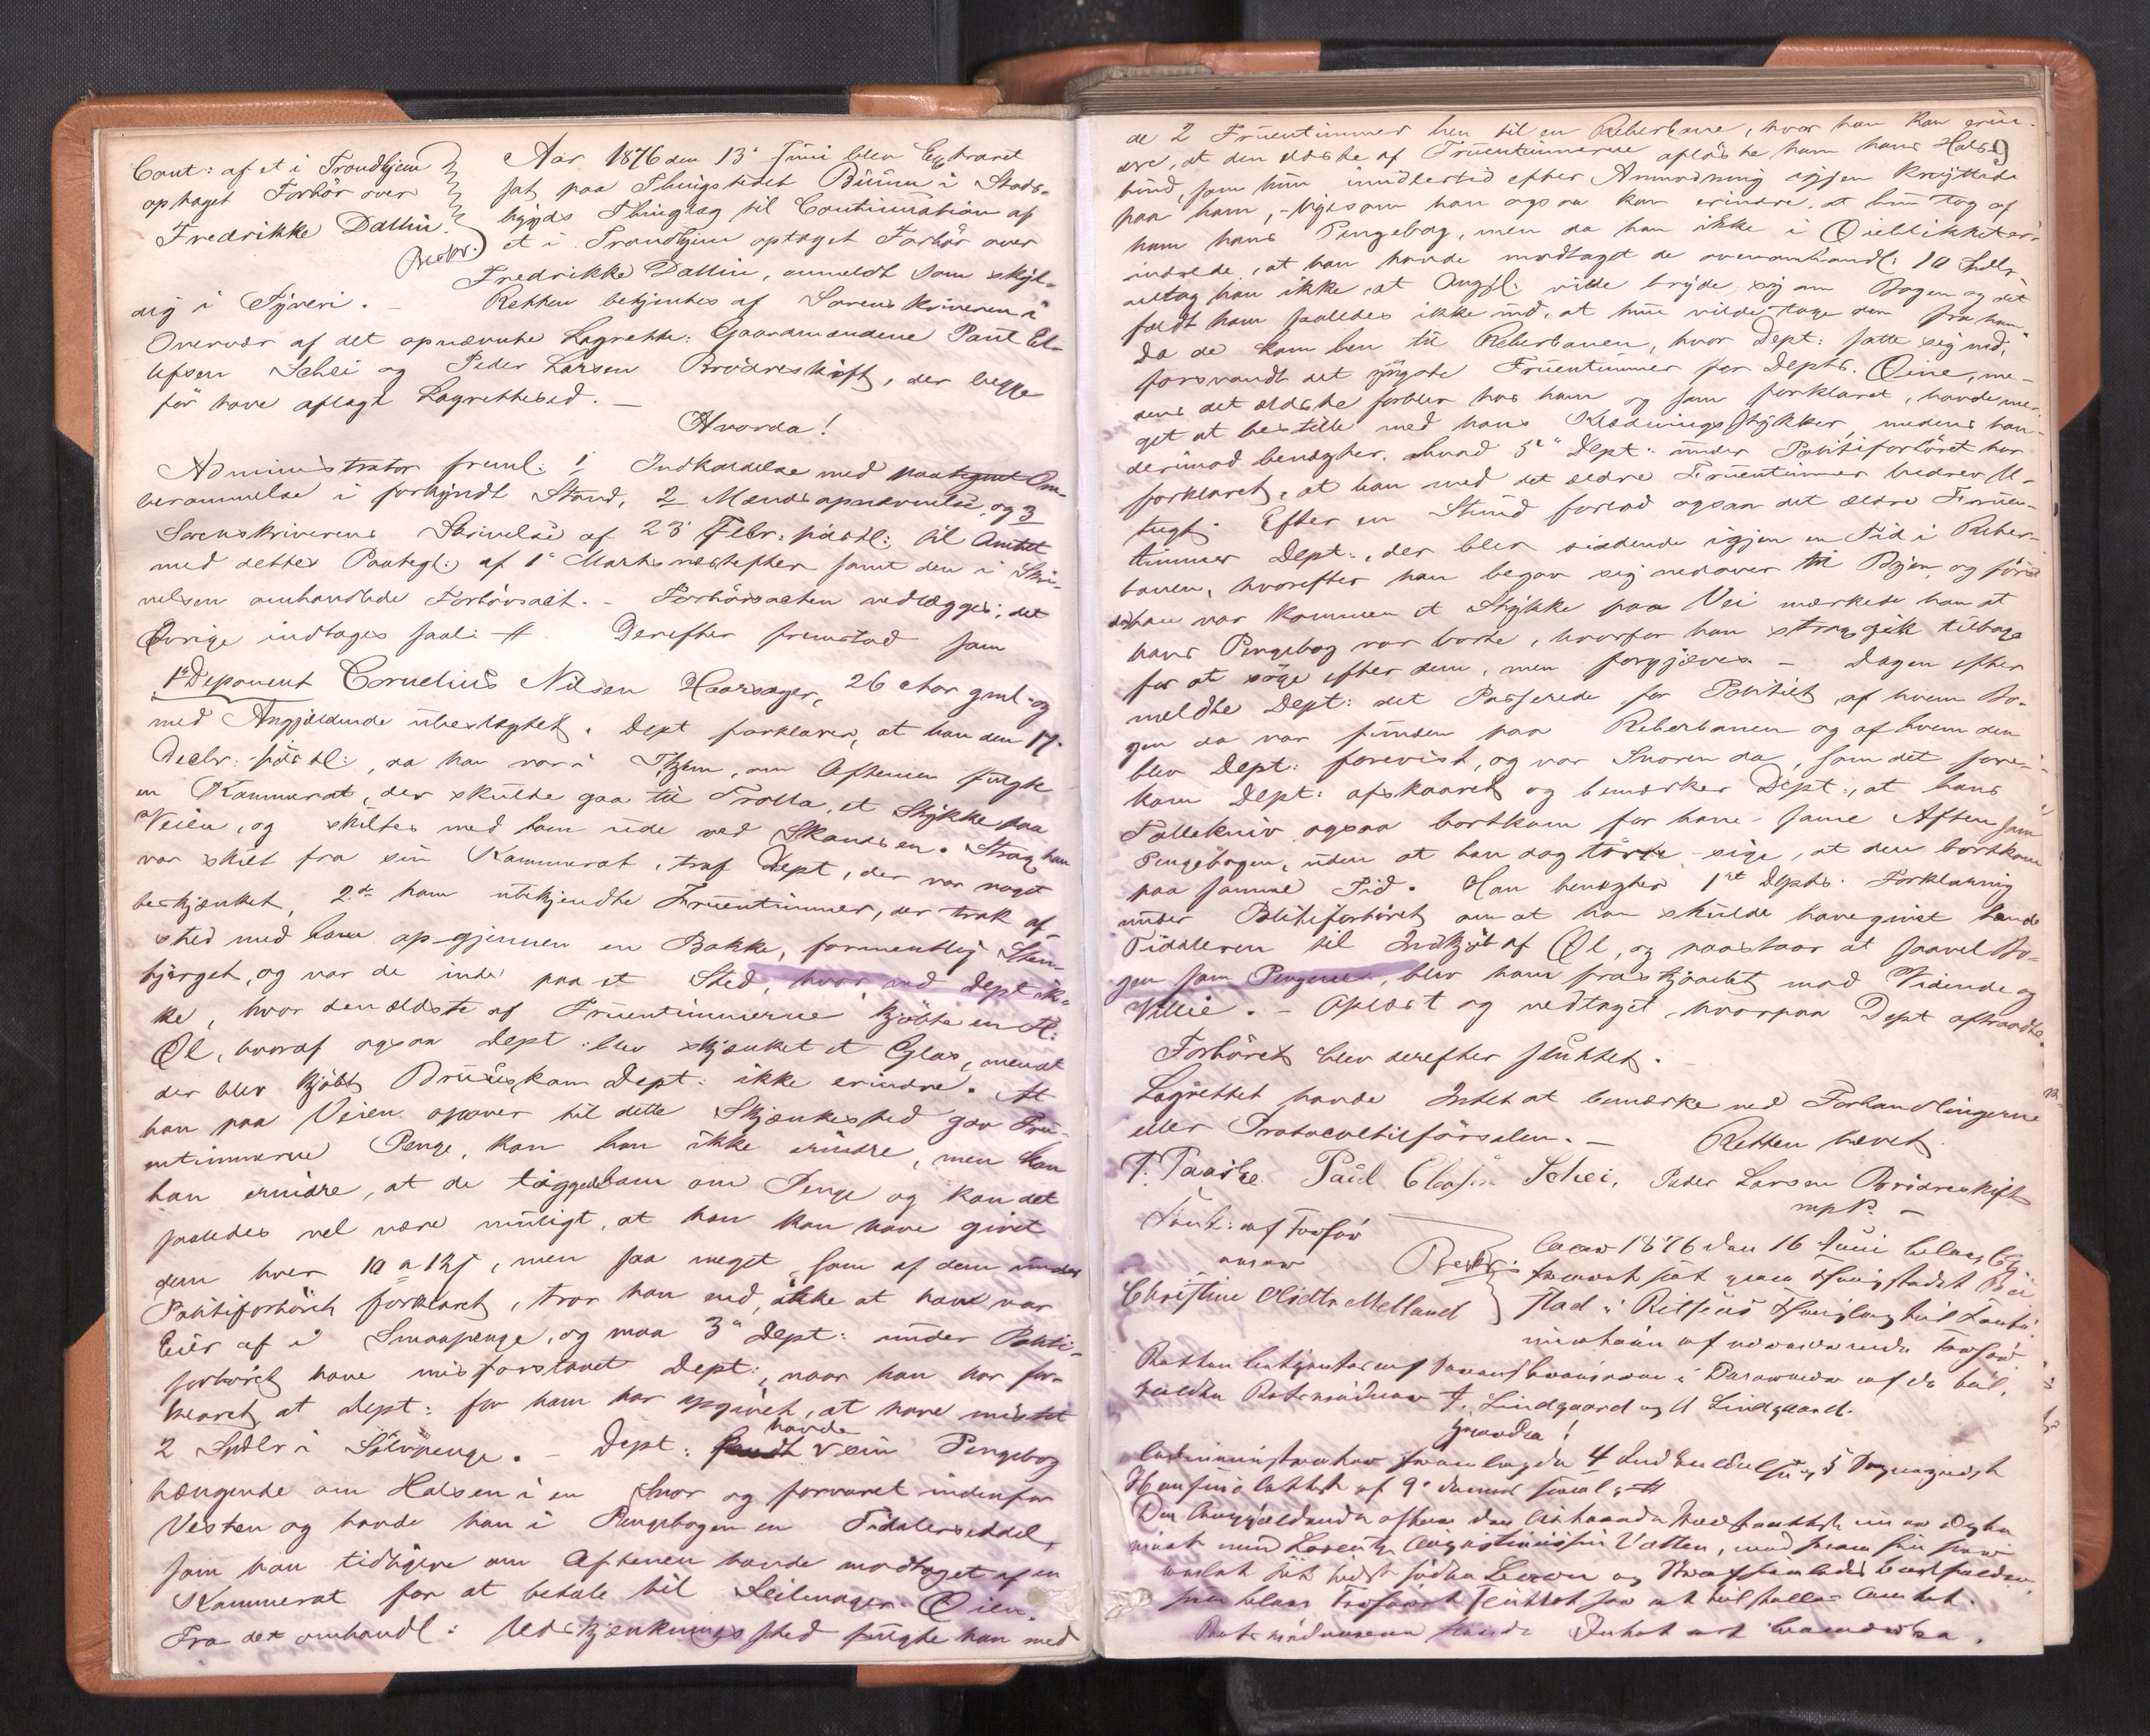 Cont: af et i Trondhjem
optaget Forhör over
Fredrikke Dallin.
Aar 1876 den 13de Juni blev Extraret
sat paa Thingstedet Bünün i Stads-
bygds Thinglag til Continuation af
et i Trondhjem optaget Forhör over
Fredrikke Dallin, anmeldt som skyl-
dig i Tyveri. - Retten betjentes af Sorenskriveren i
Overvær af det opnævnte Lagrette: Gaardmændene Paul El-
lefsen Schei og Peder Larsen Brödreskift, der begge
för have aflagt Lagrettesed. -
Hvorda!
Administrator freml: 1 Indkaldelse med paategnet Om-
berammelse i forkyndt Stand, 2 Mændsopnævnelse, og 3
Sorenskriverens Skrivelse af 23de Febr. sidstl: til Amtet
med dettes Paategl: af 1ste Marts næstefter samt den i Skri-
velsen omhandlede Forhörsact. - Forhörsacten vedlægges; det
Övrige indtages saal: # Derefter fremstod som
1ste Deponent Cornelius Nilsen Haarsager, 26 Aar gml. og
med Angjældende übeslægtet. Dept forklarer, at han den 17de
Decbr. sidstl:, da han var i Thjem, om Aftenen fulgte
en Kammerat, der skulde gaa til Trolla, et Stykke paa
Veien, og skiltes med ham ude ved Skansen. Strax han
var skilt fra sin Kammerat, traf Dept, der var noget
beskjænket, 2de ham ubekjendte Fruentimmer, der trak af-
sted med ham op gjennem en Bakke, formentlig Sten-
bjerget, og var de inde paa et Sted, hvor ved Dept ik-
ke, hvor den ældste af Fruentimmerne kjöbte en Fl:
Öl, hvoraf ogsaa Dept: blev skjænket et Glas, men at
der blev kjöbt Bruus, kan Dept: ikke erindre. At
han paa Veien opover til dette Skjænkested gav Fru-
entimmerne Penge, kan han ikke erindre, men kan
han erindre, at de tiggede ham om Penge og kan det
saaledes vel være muligt, at han kan have givet
dem hver 10 a 12 s, men saa meget som af dem under
Politiforhöret forklaret, tror han ei, ikke at have var
Eier af i Smaapenge, og maa 3die Dept: under Politi-
forhöret have misforstaaet Dept:, naar han har for-
klaret at Dept: for ham har opgivet, at have mistet
2 Spdlr i Sölvpenge. - Dept: havde sin Pengebog
hængende om Halsen i en Snor og forvaret indenfor
Vesten og havde han i Pengebogen en Tidalerseddel,
som han tidligere om Aftenen havde modtaget af en
Kammerat for at betale til Seilmager Öien.
Fra det omhandl: Udskjænkningssted fulgte han med
9
de 2 Fruentimmer hen til en Reberbane, hvor han kan erin-
dre, at den ældste af Fruentimmerne aflöste ham hans Hals-
bind, som hun imidlertid efter Anmodning igjen knyttede
paa ham, - ligesom han ogsaa kan erindre, at hun tog af
ham hans Pengebog, men da han ikke i Öieblikket er-
indrede, at han havde modtaget de ovenomhandl: 10 Spdlr,
antog han ikke, at Angjl: vilde bryde sig om Bogen og det
faldt ham saaledes ikke ind, at hun vilde tage den fra ham.
Da de kom hen til Reberbanen, hvor Dept: satte sig ned,
forsvandt det yngste Fruentimmer for Depts. Öine, me-
dens det ældste forblev hos ham og som forklaret, havde me-
get at bestille med hans Klædningsstykker, medens han
derimod benægter, hvad 5te Dept: under Politiforhöret har
forklaret, at han med det ældre Fruentimmer bedrev U-
tugt. Efter en Stund forlod ogsaa det ældre Fruen-
timmer Dept:, der blev siddende igjen en Tid i Reber-
banen, hvorefter han begav sig nedover til Byen, og först
da han var kommen et Stykke paa Vei mærkede han at
hans Pengebog var borte, hvorfor han strax gik tilbage
for at söge efter den, men forgjæves. - Dagen efter
meldte Dept: det Passerede for Politiet, af hvem Bo-
gen da var funden paa Reberbanen og af hvem den
blev Dept: forevist, og var Snoren da, som det fore-
kom Dept: afskaaret og bemærker Dept:, at hans
Tollekniv ogsaa bortkom for ham samme Aften som
Pengebogen, uden at han dog törte sige, at den bortkom
paa samme Tid. Han benægter 1ste Depts. Forklaring
under Politiforhöret om at han skulde have givet hende
Tidaleren til Indkjöb af Öl, og paastaar at saavel Bo-
gen som Pengene, blev ham frastjaalet mod Vidende og
Villie. - Oplæst og vedtaget, hvorpaa Dept aftraadte.
Forhöret blev derefter sluttet.
Lagrettet havde Intet at bemærke ved Forhandlingerne
eller Protocoltilförselen. - Retten hævet
T. Paaske Paul Elefsen Schei, Peder Larsen Brödreskift
mpP. -
Cont: af Forhör
over
Christine Melland
Aar 1876 den 16 Juni blev Ex-
traret sat paa Thingstedet
stad i Rissens Thinglag til Conti-
nuation af nærværende Forhör.
Retten betjentes af Sorenskriveren i Overvær af de til-
kaldte Retsvidner J. Lindgaard og U Lindgaard.
Hvorda!
Administrator fremlagde 4 Indkaldelse og 5
af 9de dennes saal: #